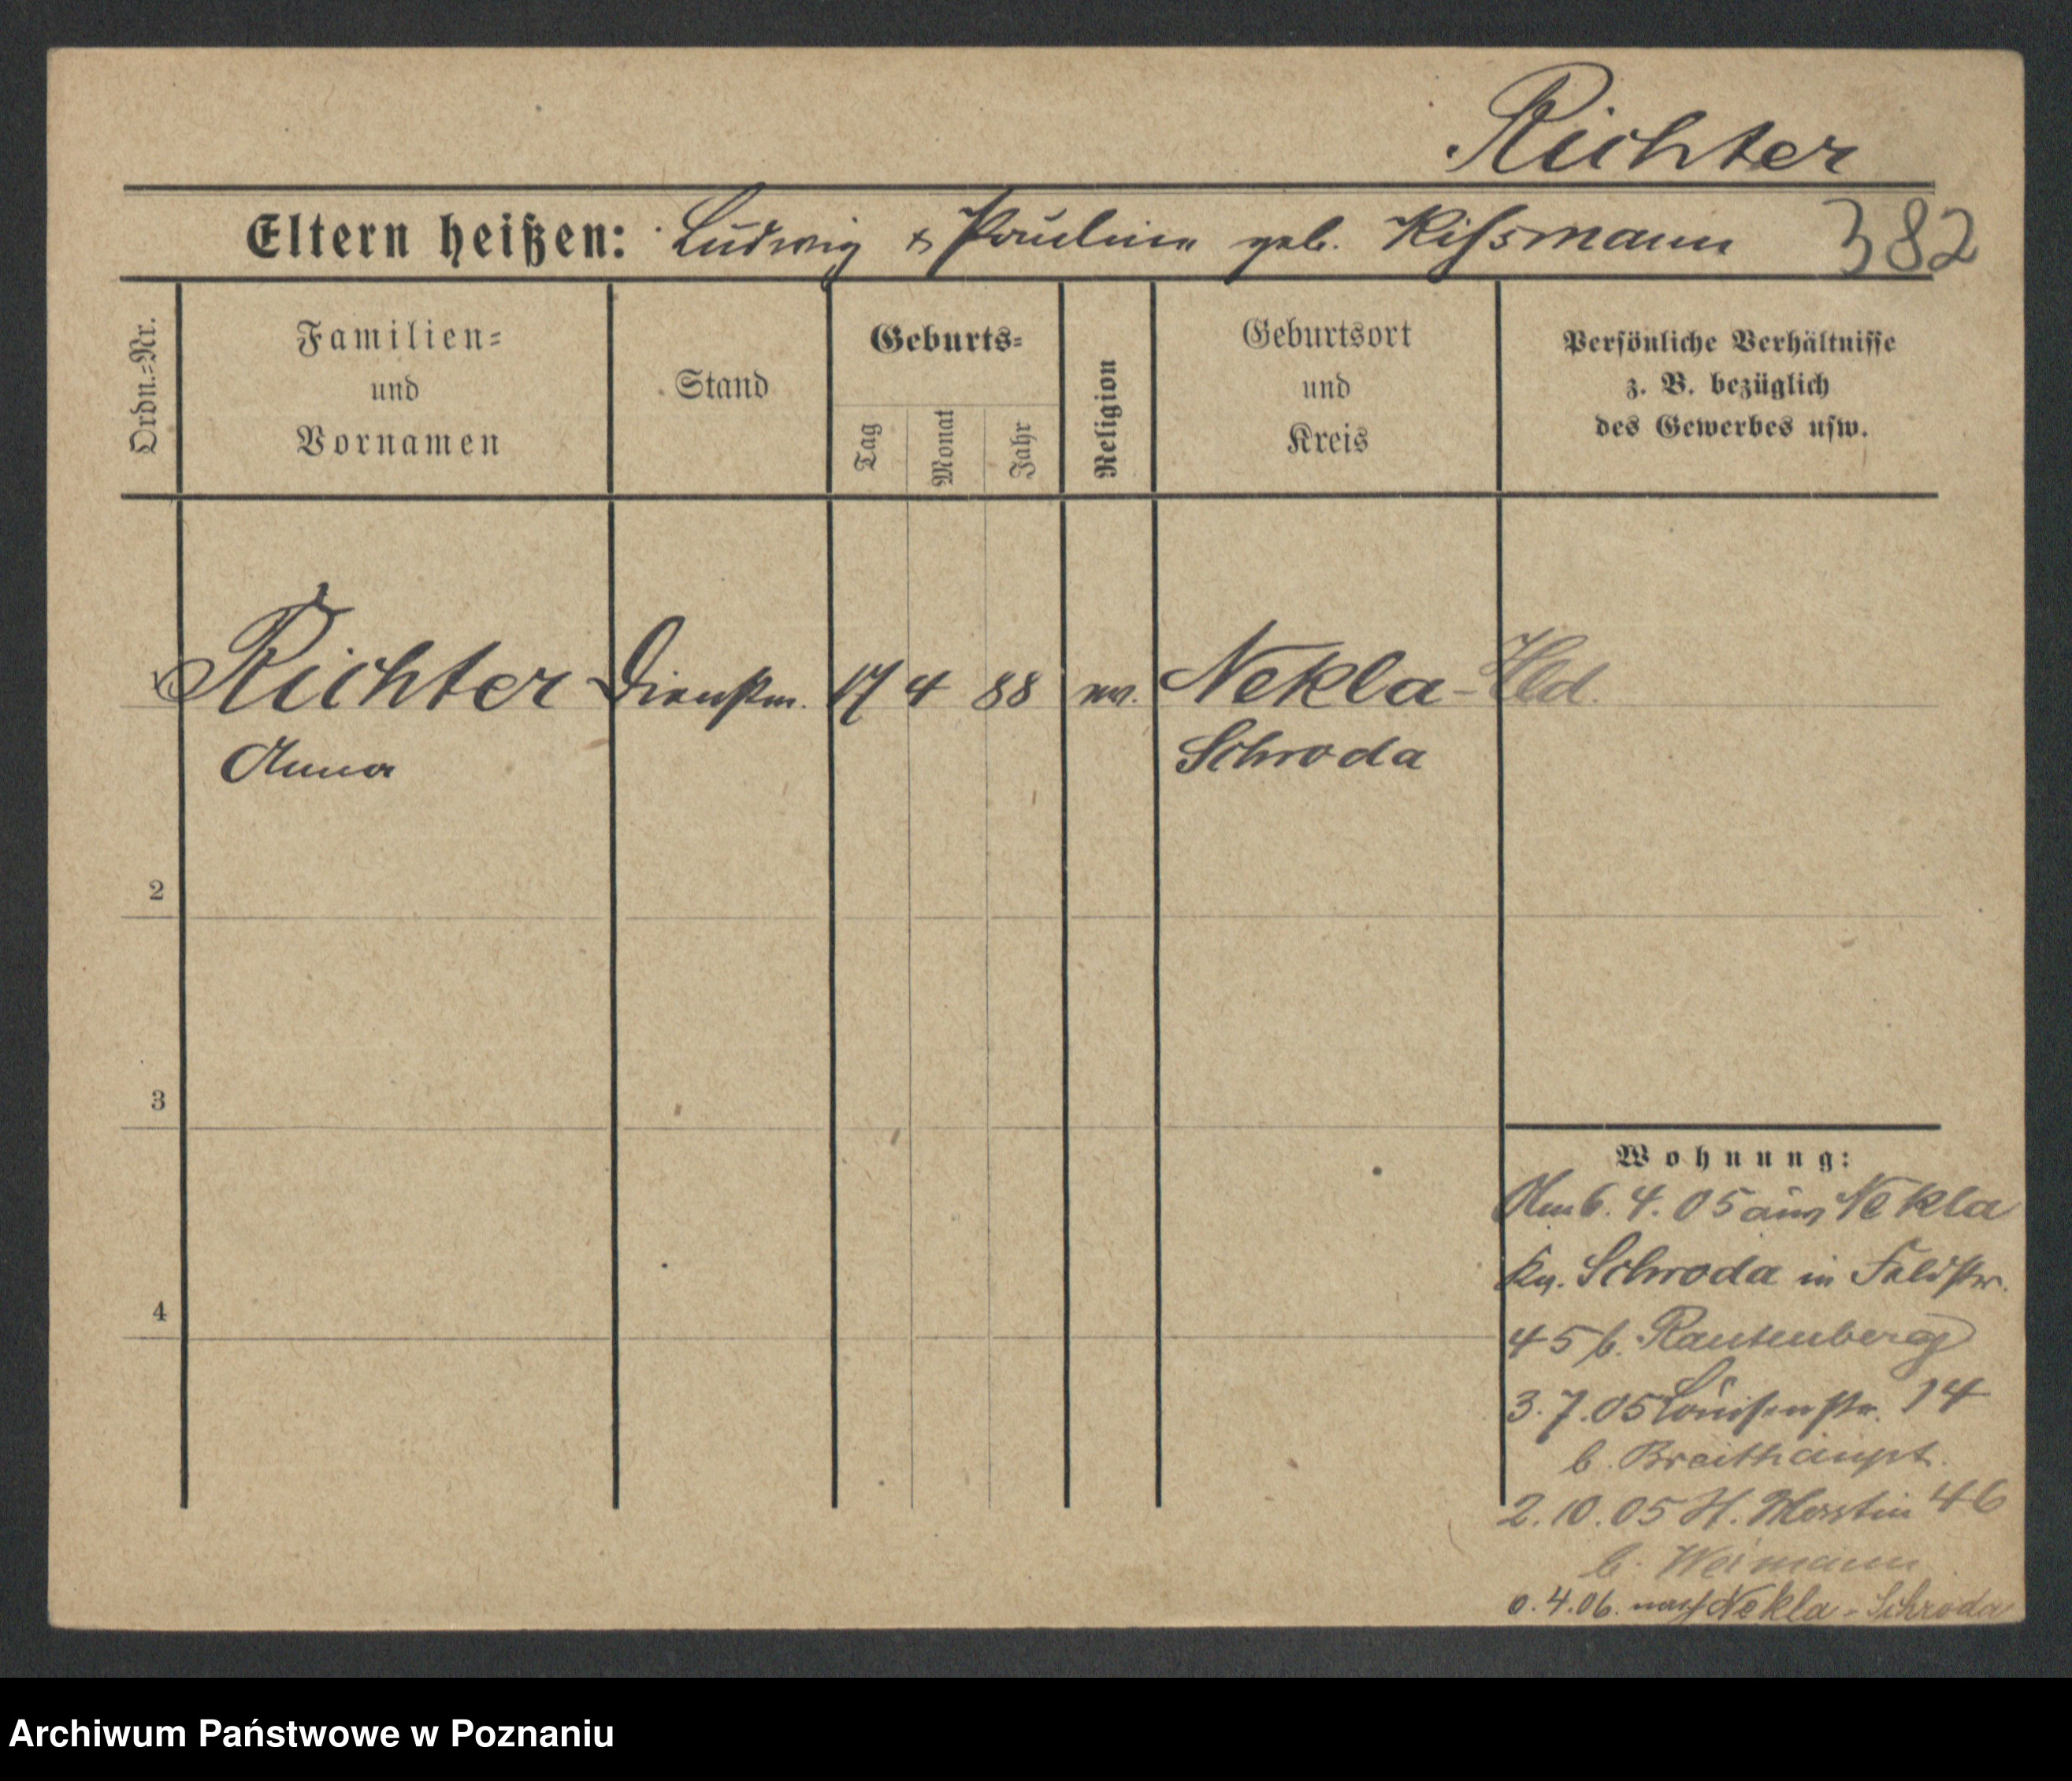 Richter
Eltern heißen: Ludwig & Pauline geb. Rißmann 382
Ordn.=Nr.
Familien=
und
Vornamen
Stand
Geburts=
Tag
Monat
Jahr
Religion
Geburtsort
und
Kreis
Persönliche Verhältnisse
z. B. bezüglich
des Gewerbes usw.
Richter Dienstm. 17 4 88 ev. Nekla-Hld.
Anna Schroda
2
3
4
Wohnung:
Am 6. 4. 05 aus Nekla
Kr. Schroda in Feldstr.
45 b. Rautenberg
3. 7. 05 Louisenstr. 14
b. Breithaupt.
2. 10. 05 St. Martin 46
b. Weimann
0. 4. 06. nach Nekla-Schroda
Archiwum Państwowe w Poznaniu